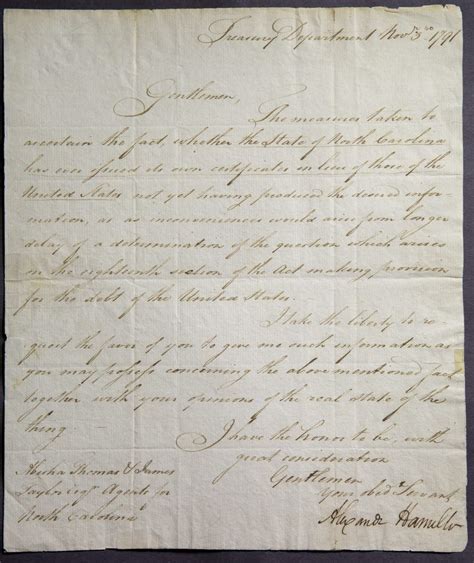 Treasury Department Nov 3rd 1791
Gentlemen,
The measures taken to
ascertain the fact, whether the State of North Carolina
has ever issued its own certificates in lieu of those of the
United States not yet having produced the desired infor-
mation, as as inconveniences would arise from longer
delay of a determination of the question which arises
in the eighteenth section of the Act making provision
for the debt of the United States.
I take the liberty to re-
quest the favor of you to give me such information as
you may possess concerning the above mentioned fact
together with your opinions of the real state of the
thing.
I have the honor to be, with
great consideration
Gentlemen
Your obedt Servant
Alexander Hamilton
Abisha Thomas & James
Taylor esqr Agents for
North Carolina